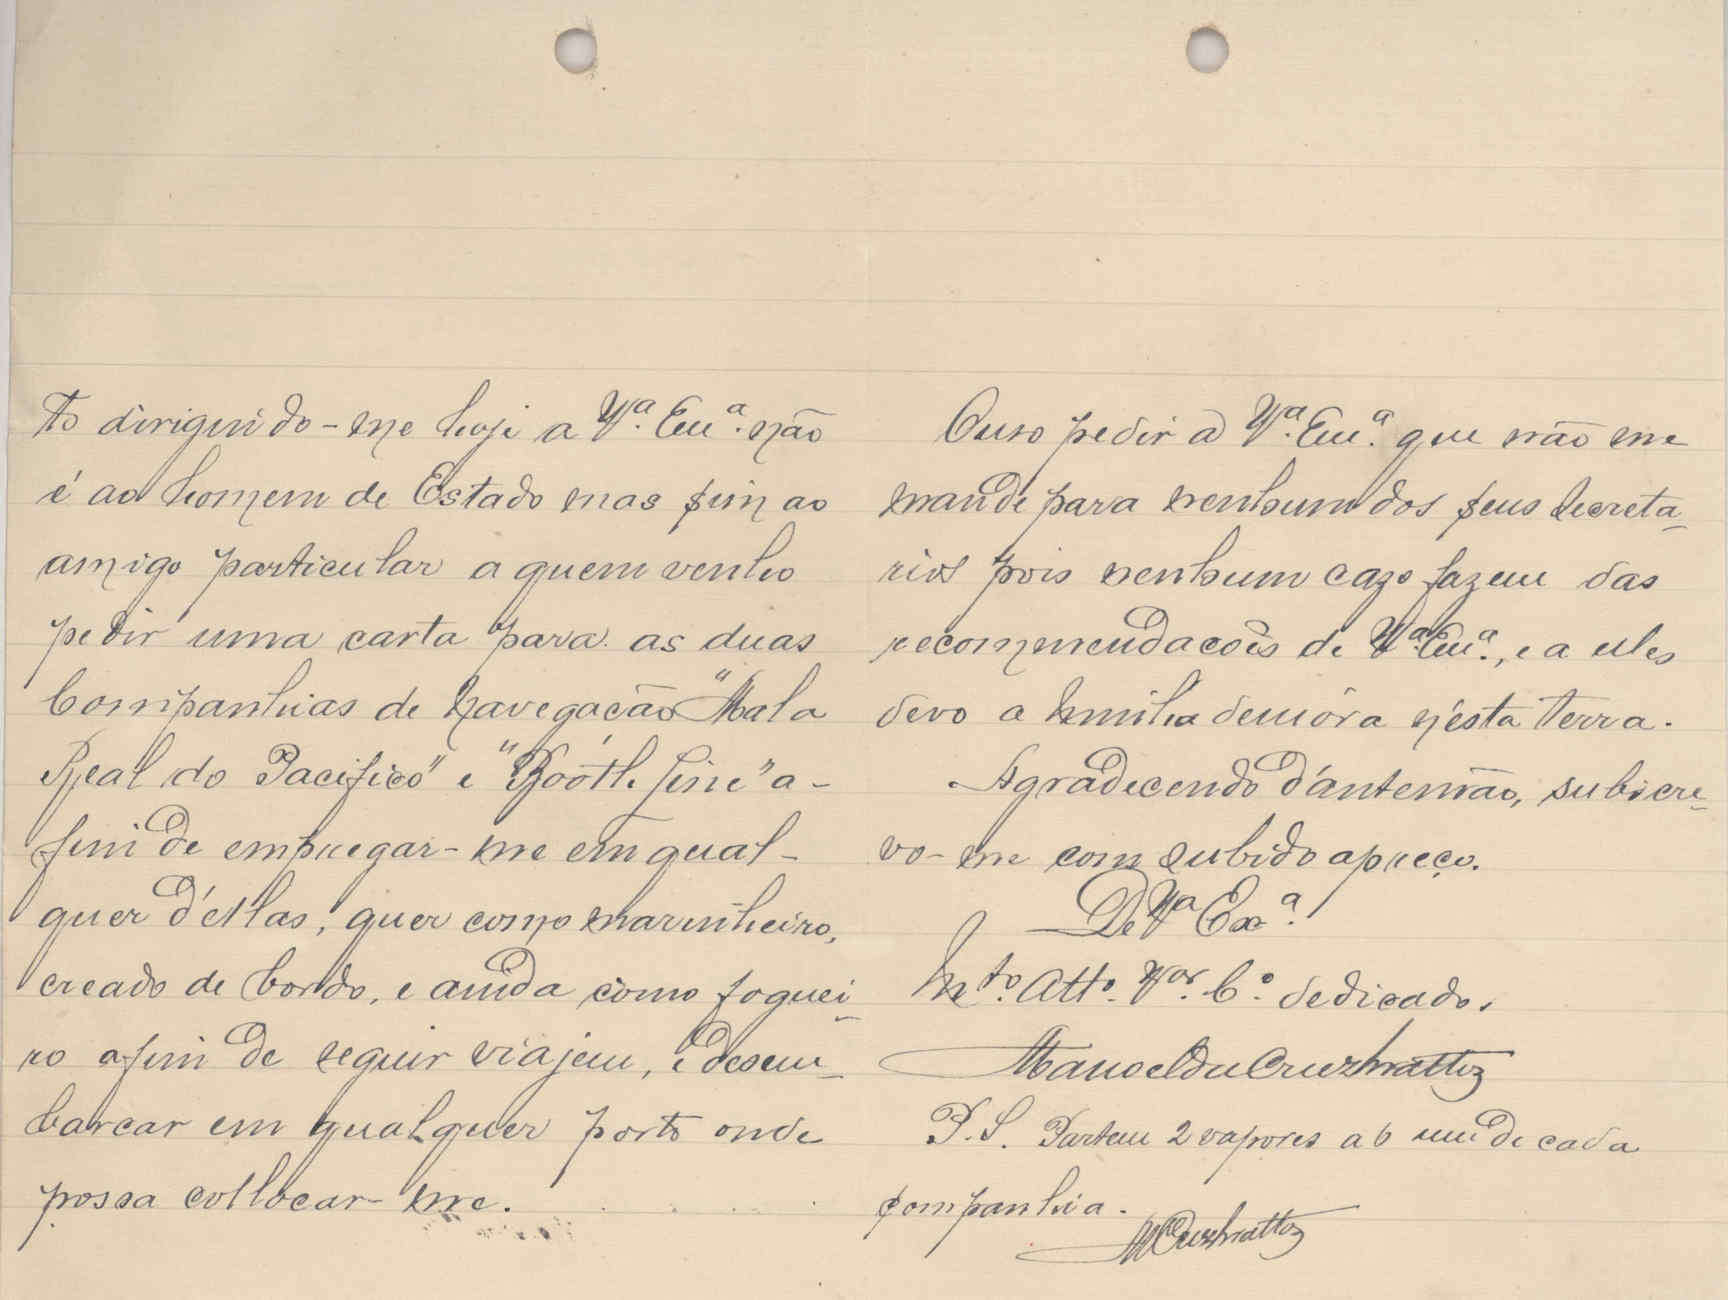 to dirigindo-me hoje a Vª. Exª. não
é ao homem de Estado mas sim ao
amigo particular a quem venho
pedir uma carta para as duas
Companhias de Navegação "Mala
Real do Pacifico" e "Booth Line" a-
fim de empregar-me em qual-
quer d'ellas, quer como marinheiro,
creado de bordo, e ainda como foguei-
ro afim de seguir viajem, e desem-
barcar em qualquer porto onde
possa collocar-me.
Ouso pedir a Vª. Exª. que não me
mande para nenhum dos seus secreta-
rios pois nenhum cazo fazem das
recommendacões de Vª. Exª., e a elles
devo a minha demóra n'esta terra.
Agradecendo d'antemão, subscre-
vo-me com subido apreço.
De Vª Exª.
Mto. Atto. Vor. Co. dedicado.
Manoel da Cruz Mattos
P.S. Partem 2 vapores a 6 um de cada
companhia.
MCruzMattos